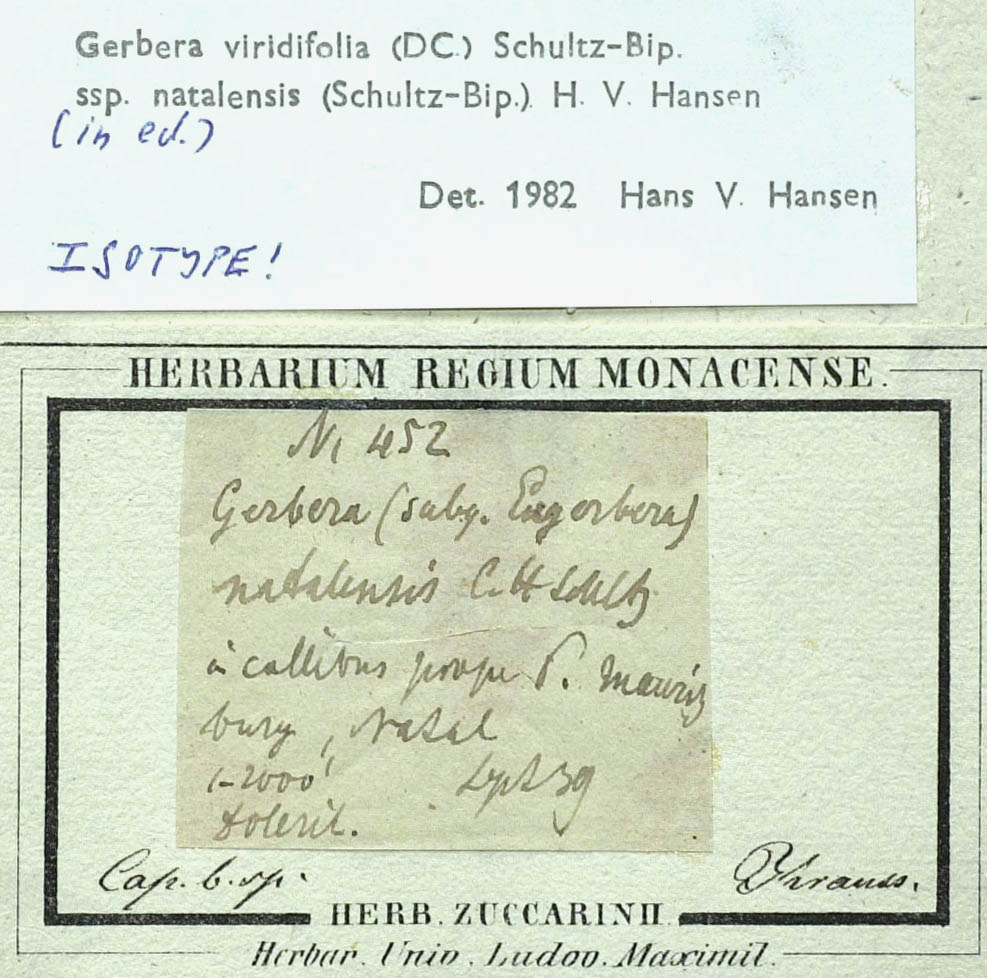 Gerbera viridifolia (DC.) Schultz-Bip.
ssp. natalensis (Schultz-Bip.) H. V. Hansen
(in ed.)
Det. 1982 Hans V. Hansen
ISOTYPE!
HERBARIUM REGIUM MONACENSE.
N 452
Gerbera (subg. Eugerbera)
natalensis C. H Schltz
in collibus prope P. Mauritz
burg, Natal
1-2000'
Sept 39
Dolerit.
Cap. b. sp.
Krauss.
HERB. ZUCCARINII.
Herbar. Univ. Ludov. Maximil.